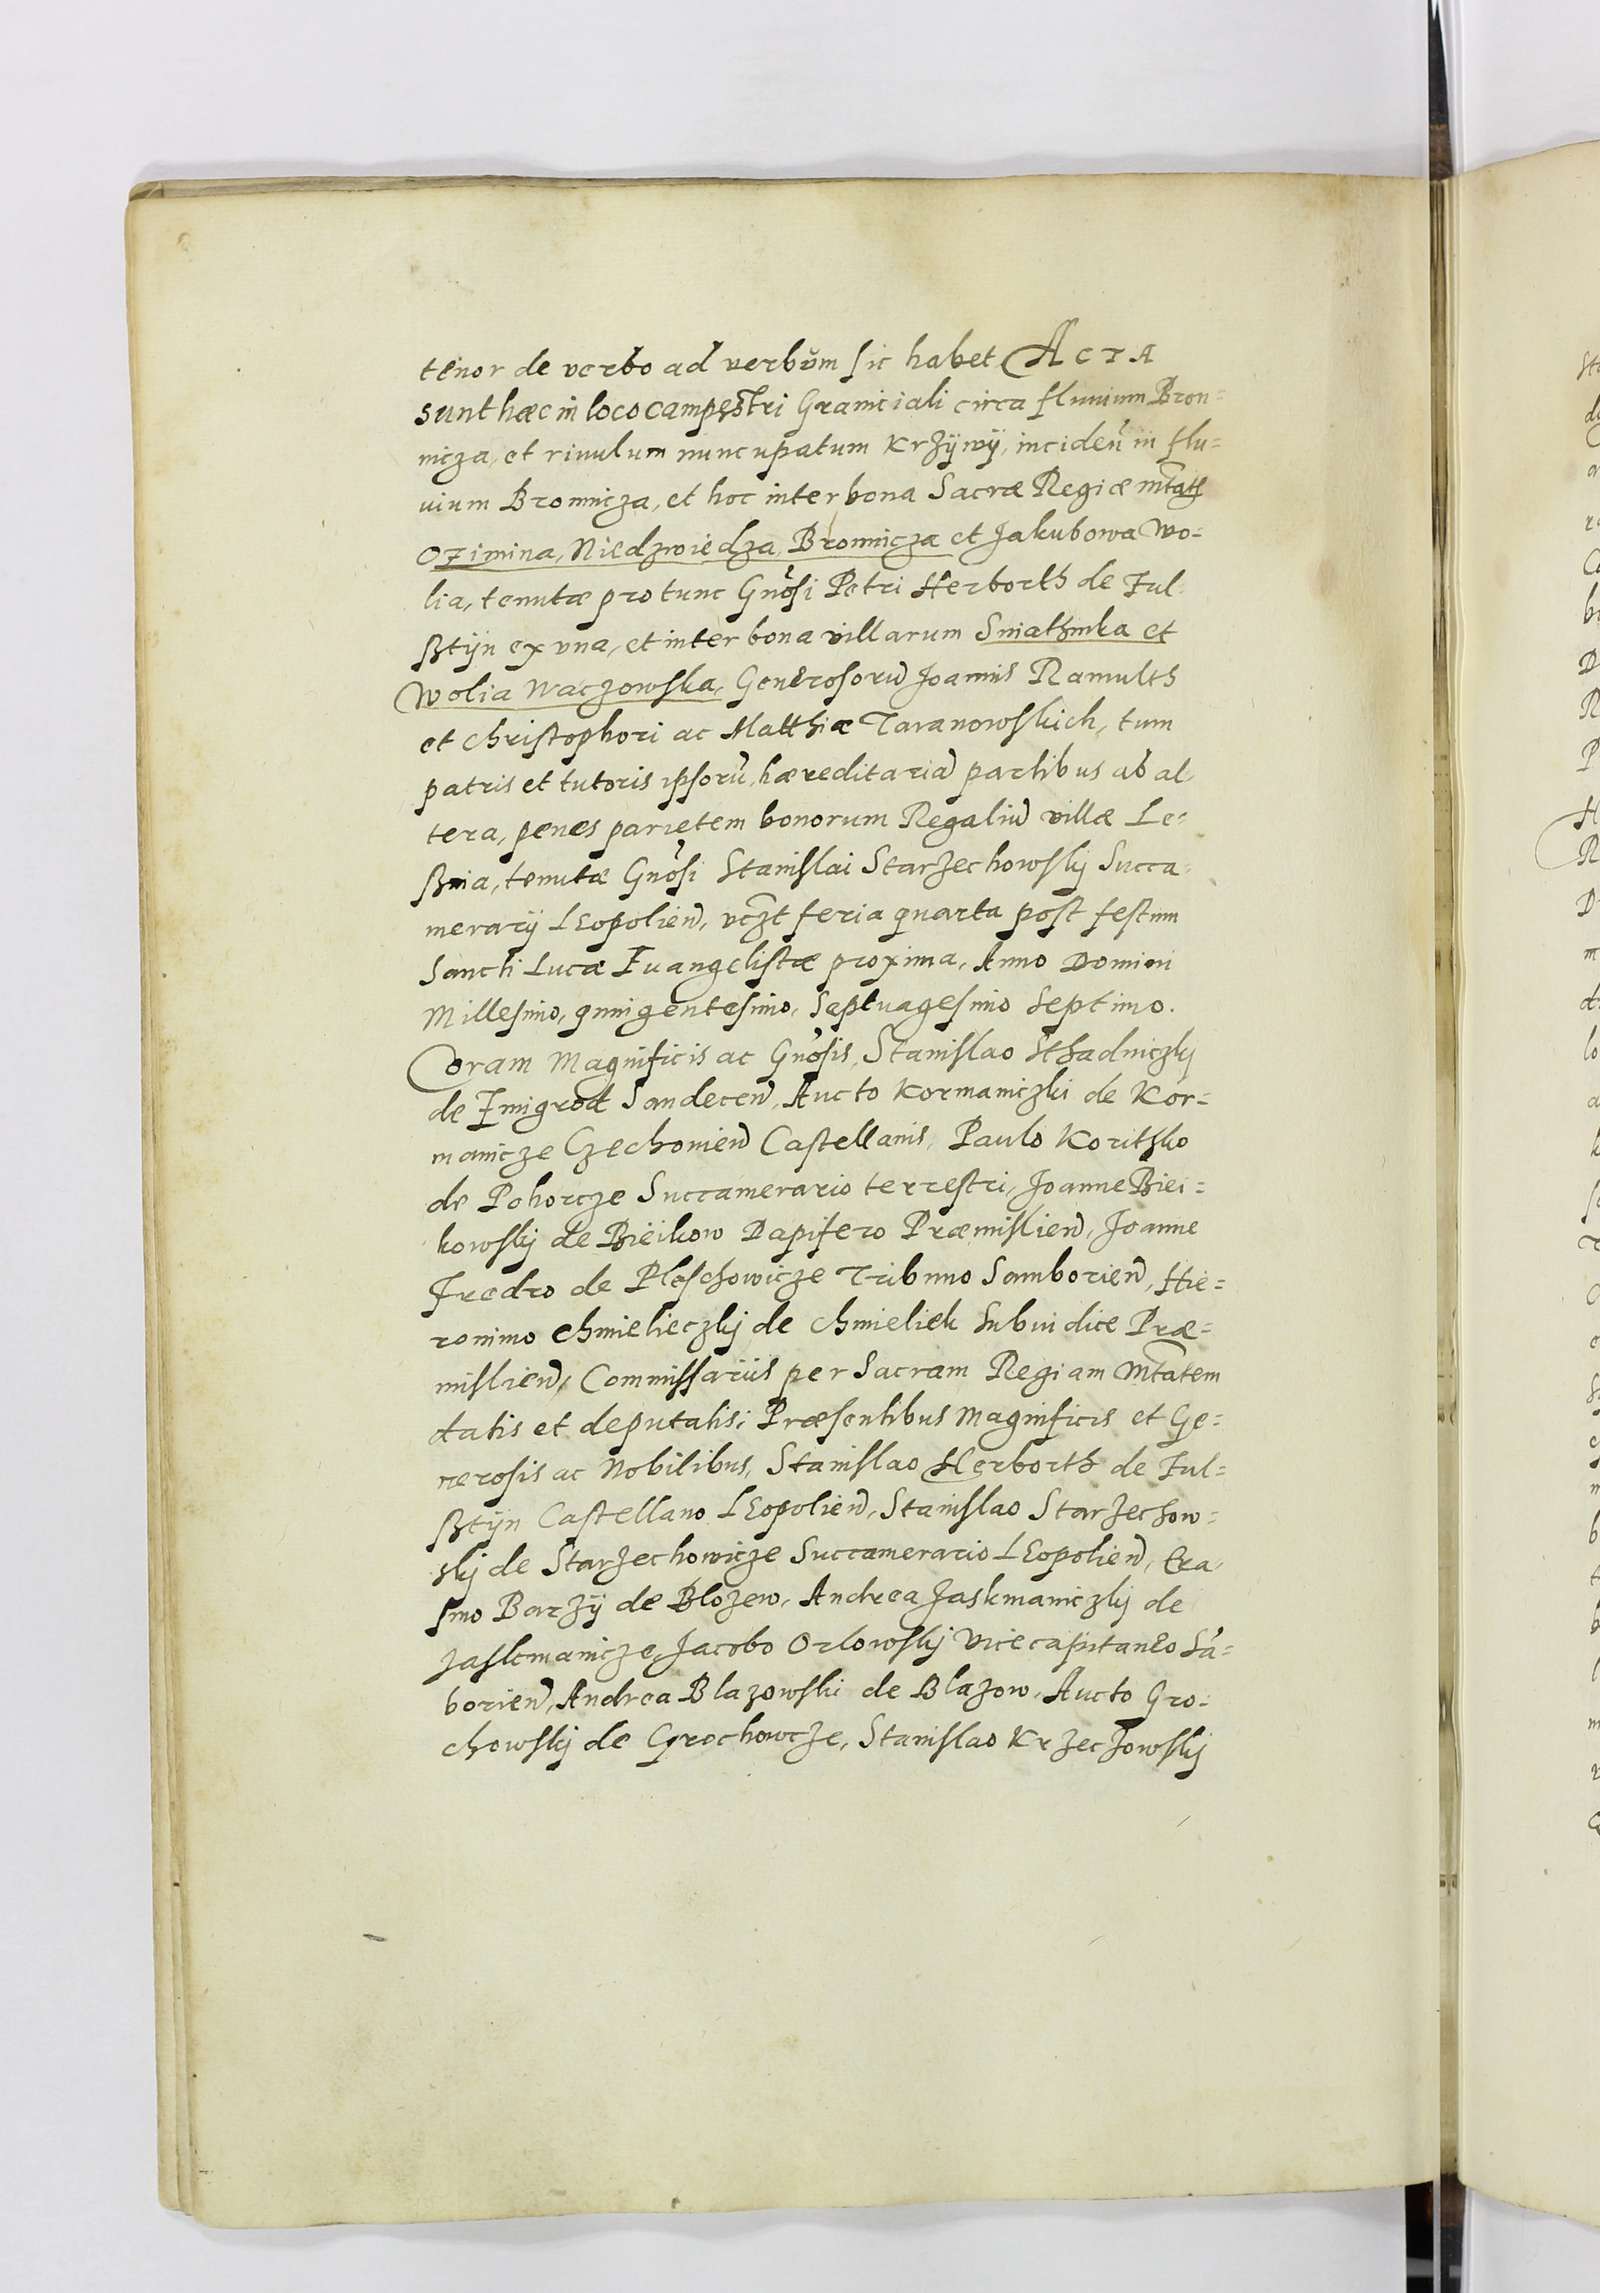 tenor de verbo ad verbŭm sic habet ACTA
sunt hæc in loco campestri Graniciali circa fluuium Bron=
nicza, et riuulum nuncupatum Krzÿwÿ, inciden̄ in flu=
uium Bronnicza, et hoc inter bona Sacræ Regiæ Mtatis
Ozimina, Niedzwiedza, Bronnicza et Jakubowa Wo=
lia, tenutæ protunc Gnōsi Petri Herborth de Ful
sztijn ex vna, et inter bona villarum Sniathinka et
Wolia Waczowska, Generosorū Joannis Ramulth
et Christophori ac Matthiæ Taranowskich, tum
patris et tutoris ipsorū, hæreditariā partibus ab al
tera, penes parietem bonorum Regaliū villæ Le=
sznia, tenutæ Gnōsi Stanislai Starzechowskij Succa=
merarij LEopolien̄, vczt feria quarta post festum
Sancti Lucæ Euangelistæ proxima, Anno Domini
Millesimo, quingentesimo, Septuagesimo Septimo.
Coram Magnificis ac Gnōsis, Stanislao Sthadniczkij
de Zmigrod Sandecen̄, Aucto Kormaniczki de Kor=
manicze Czechonien̄ Castellanis, Paulo Koritsko
de Pohorcze Succamerario terrestri, Joanne Biei=
kowskij de Bieikow Dapifero Præmislien̄, Joanne
Fredro de Pleschowicze Tribuno Samborien̄, Hie=
ronimo Chmielieczkij de Chmieliek Subiudice Præ=
mislien̄, Commissariis per Sacram Regiam Mtatem
datis et deputatis; Præsentibus Magnificis et Ge=
nerosis ac Nobilibus, Stanislao Herborth de Ful=
sztijn Castellano LEopolien̄, Stanislao Starzechow=
skij de Starzechowicze Succamerario LEopolien̄, Era
smo Barzÿ de Blozew, Andrea Jaskmaniczkij de
Jaskmanicze, Jacobo Orlowskij Vicecapitaneo Sā=
borien̄, Andrea Blazowski de Blazow, Aucto Gro=
chowskij de Grochowcze, Stanislao Krzeczowskij